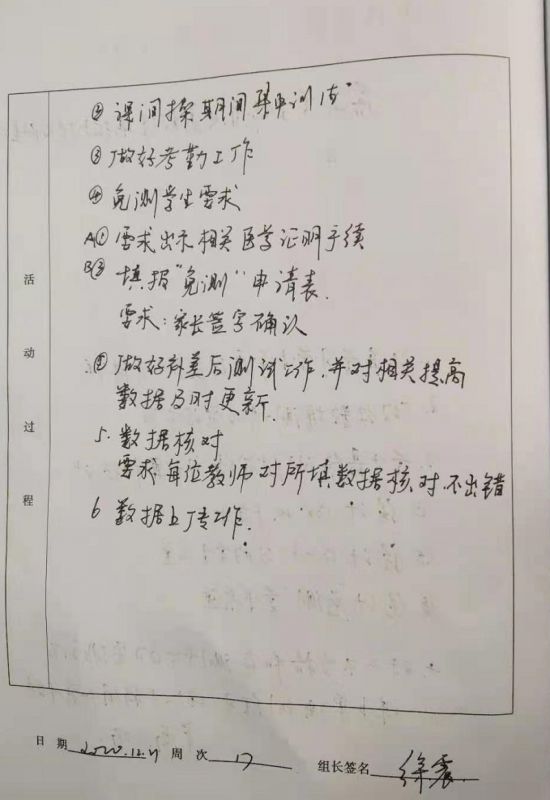 ② 课间操期间集中训练
③ 做好考勤工作
④ 免测学生要求
A① 要求出示相关医学证明手续
B② 填报"免测"申请表.
要求:家长签字确认
⑤ 做好补差后测试工作.并对相关提高
数据及时更新.
5. 数据核对
要求每位教师对所填数据核对.不出错
6 数据上传工作.
活动过程
日期 2020.12.21 周次 17 组长签名 徐震